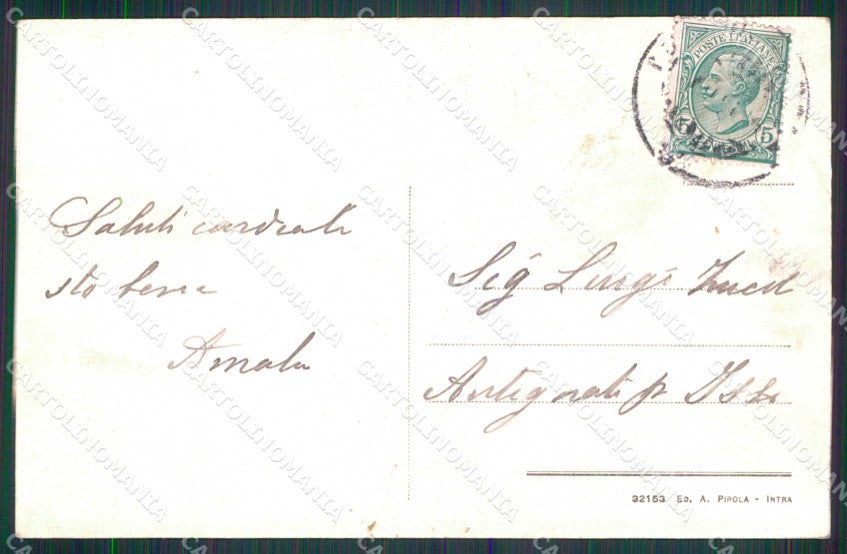 POSTE ITALIANE
5 5
Saluti cordiali
sto bene
Sig Luigi
Antegnati p Isso
32153 Ed. A. Pirola - Intra
CARTOLINOMANIA